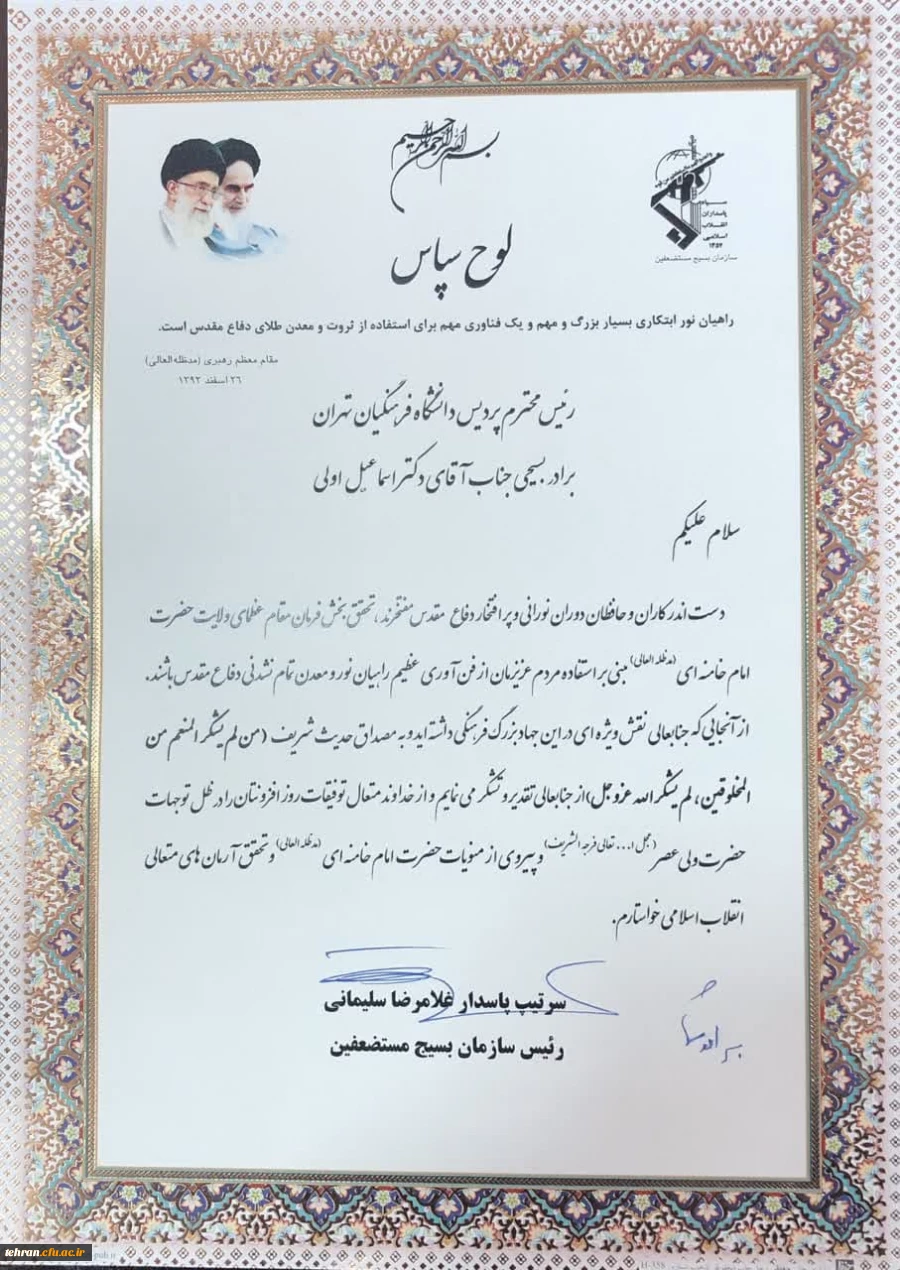 بسم الله الرحمن الرحیم
سپاه
پاسداران
انقلاب
اسلامی
۱۳۵۷
سازمان بسیج مستضعفین
لوح سپاس
راهیان نور ابتکاری بسیار بزرگ و مهم و یک فناوری مهم برای استفاده از ثروت و معدن طلای دفاع مقدس است.
مقام معظم رهبری (مدظله‌العالی)
۲۶ اسفند ۱۳۹۳
رئیس محترم پردیس دانشگاه فرهنگیان تهران
برادر بسیجی جناب آقای دکتر اسماعیل اولی
سلام علیکم
دست اندرکاران و حافظان دوران نورانی و پر افتخار دفاع مقدس مفتخرند، تحقق بخش فرمان مقام عظمای ولایت حضرت
امام خامنه ای (مدظله العالی) مبنی بر استفاده مردم عزیزمان از فن آوری عظیم راهیان نور و معدن تمام نشدنی دفاع مقدس باشند.
از آنجایی که جنابعالی نقش ویژه ای در این جهاد بزرگ فرهنگی داشته اید و به مصداق حدیث شریف (من لم یشکر المنعم من
المخلوقین، لم یشکر الله عزوجل) از جنابعالی تقدیر و تشکر می نمایم و از خداوند متعال توفیقات روز افزونتان را در ظل توجهات
حضرت ولی عصر (عجل ا... تعالی فرجه الشریف) و پیروی از منویات حضرت امام خامنه ای (مدظله العالی) و تحقق آرمان های متعالی
انقلاب اسلامی خواستارم.
سرتیپ پاسدار غلامرضا سلیمانی
رئیس سازمان بسیج مستضعفین
tehran.cfu.ac.ir